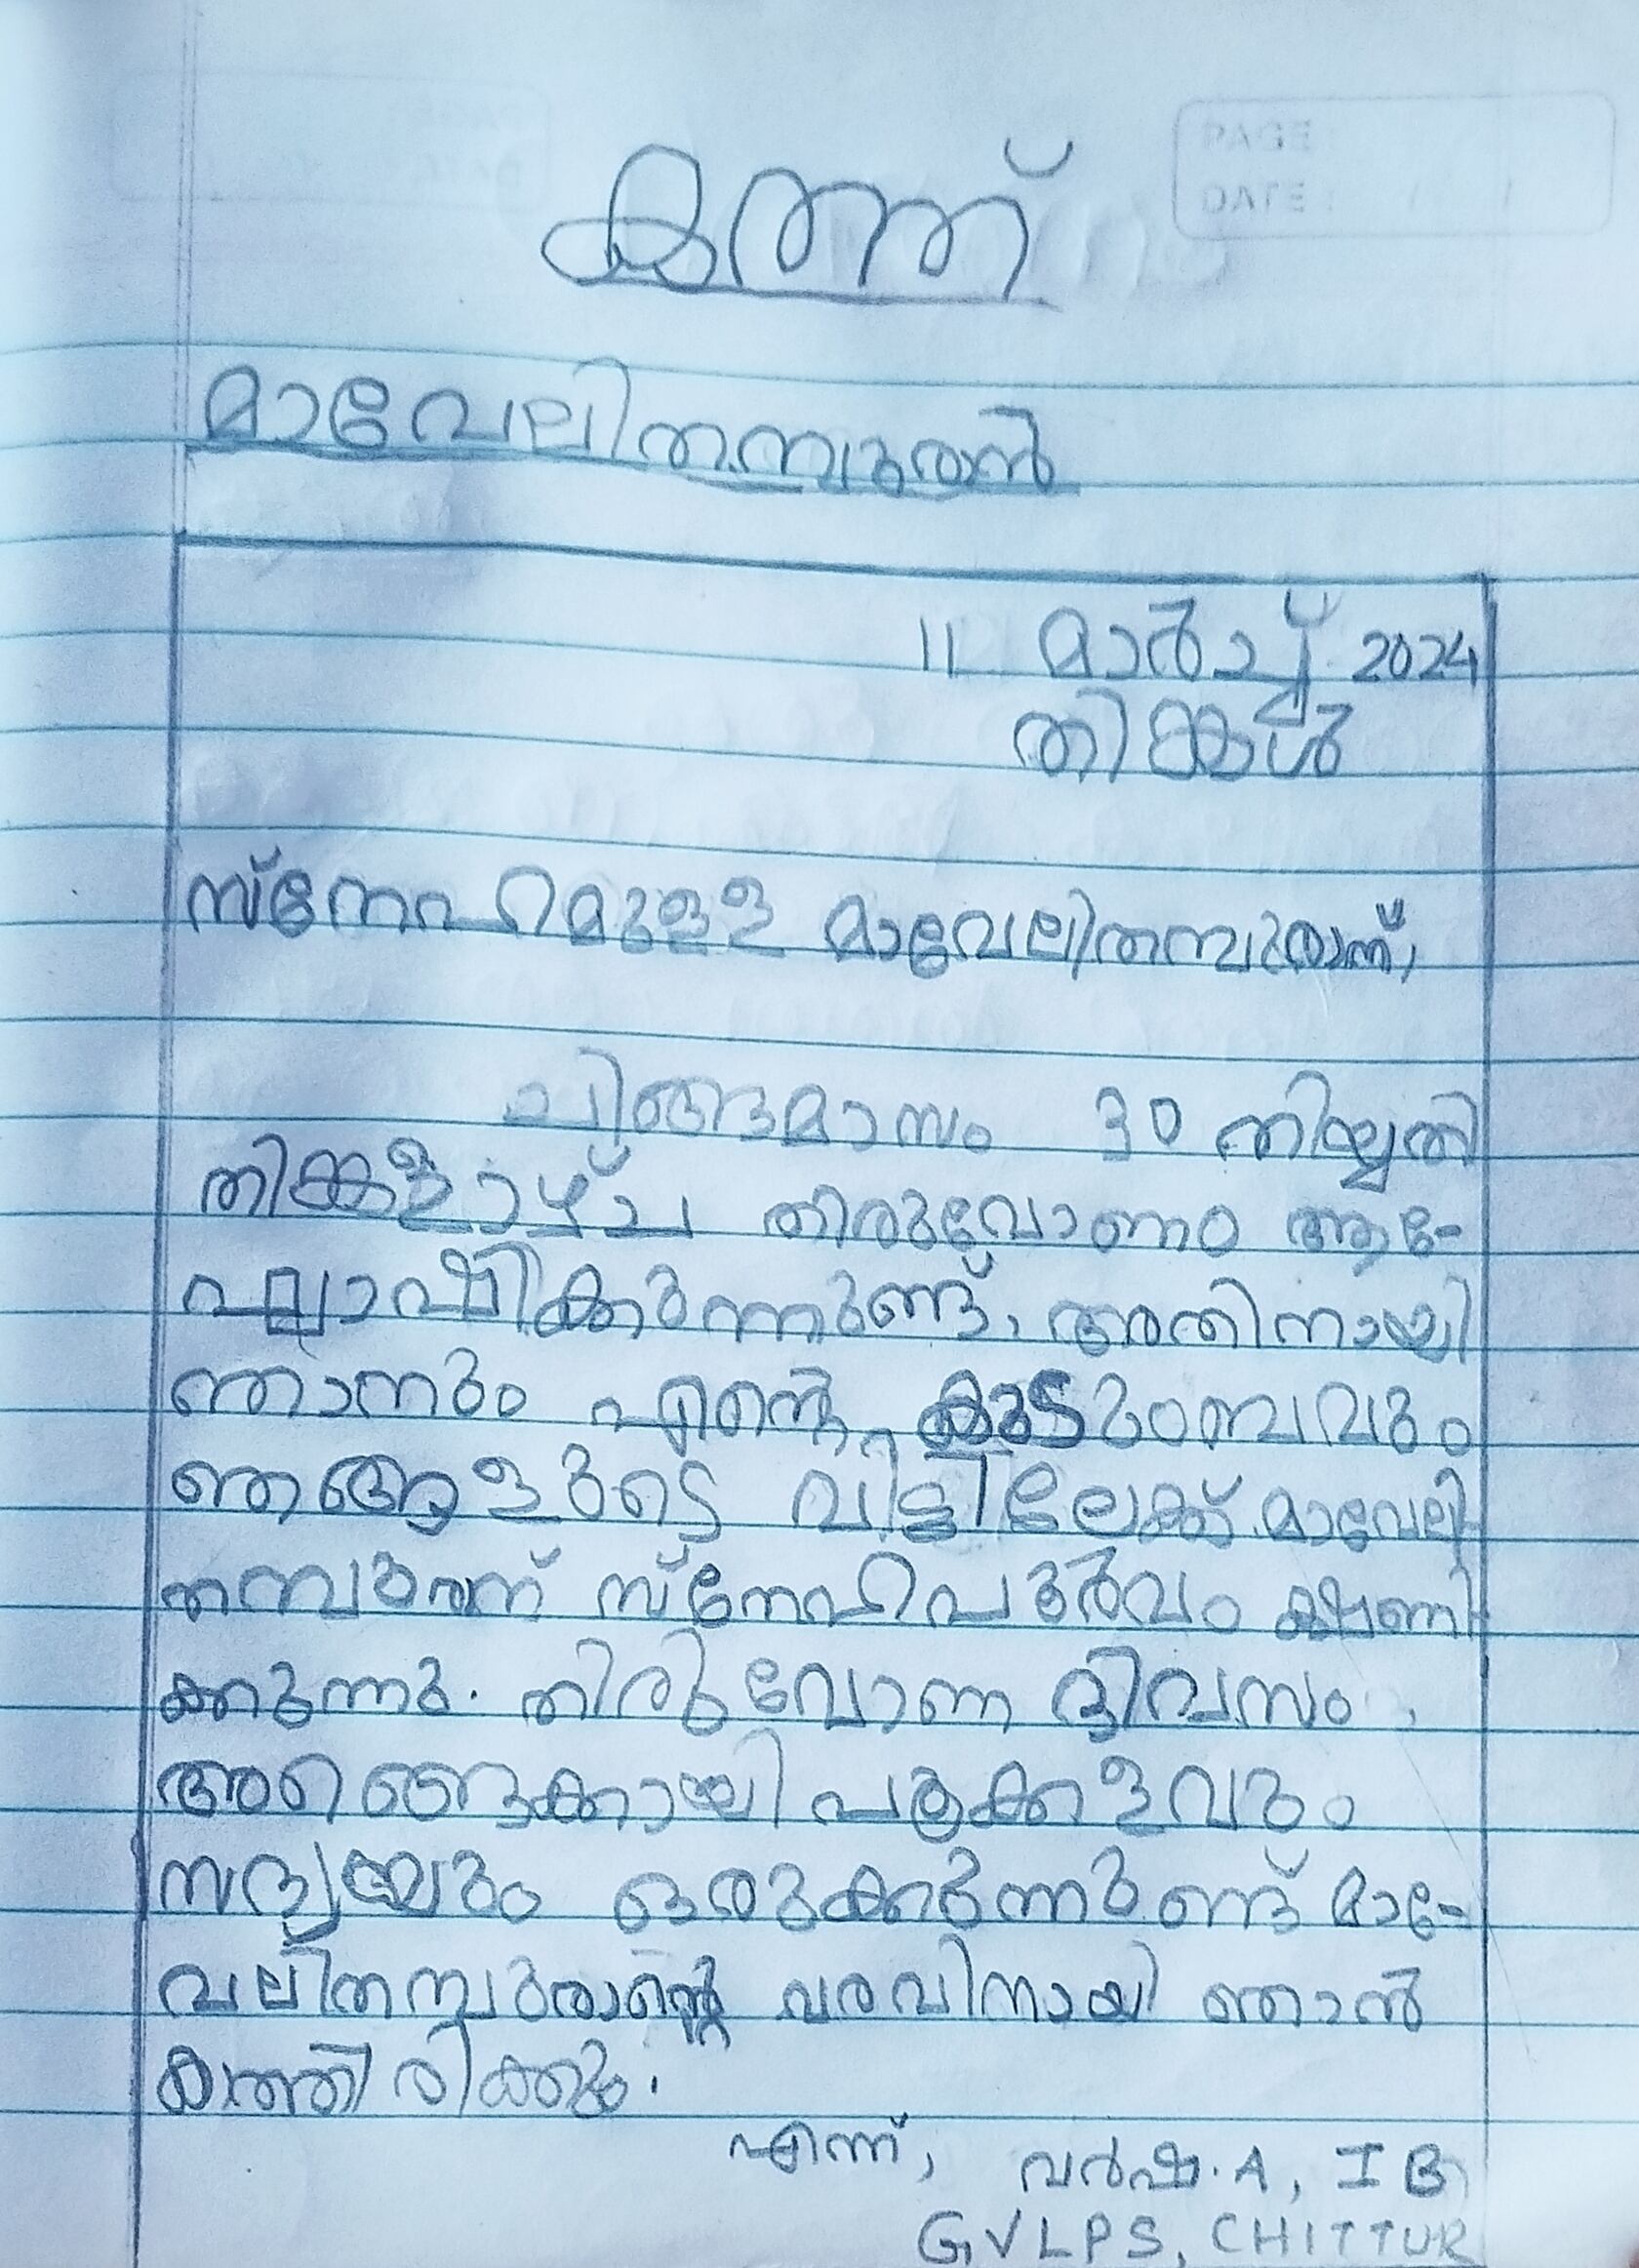 കത്ത്
മാവേലിതമ്പുരാൻ
PAGE
DATE :
11 മാർച്ച് 2024
തിങ്കൾ
സ്നേഹമുള്ള മാവേലിതമ്പുരാന്,
ചിങ്ങമാസം 30 തിയ്യതി
തിങ്കളാഴ്ച തിരുവോണം ആഘേ-
ാഷിക്കുന്നുണ്ട്, അതിനായി
ഞാനും എന്റെ കുടുംബവും
ഞങ്ങളുടെ വീട്ടിലേക്ക് മാവേലി-
തമ്പുരാന് സ്നേഹപൂർവം ക്ഷണി-
ക്കുന്നു. തിരുവോണ ദിവസം,
അങ്ങേക്കായി പൂക്കളവും
സദ്യയും ഒരുക്കുന്നുണ്ട് മാവേ-
ലിതമ്പുരാന്റെ വരവിനായി ഞാൻ
കാത്തിരിക്കും.
എന്ന്, വർഷ.A, I B
GVLPS, CHITTUR